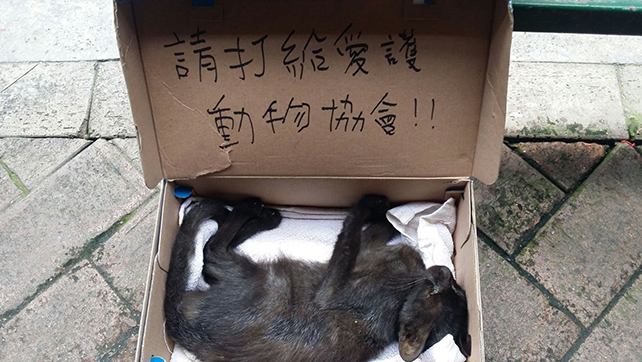 請打給愛護
動物協會!!